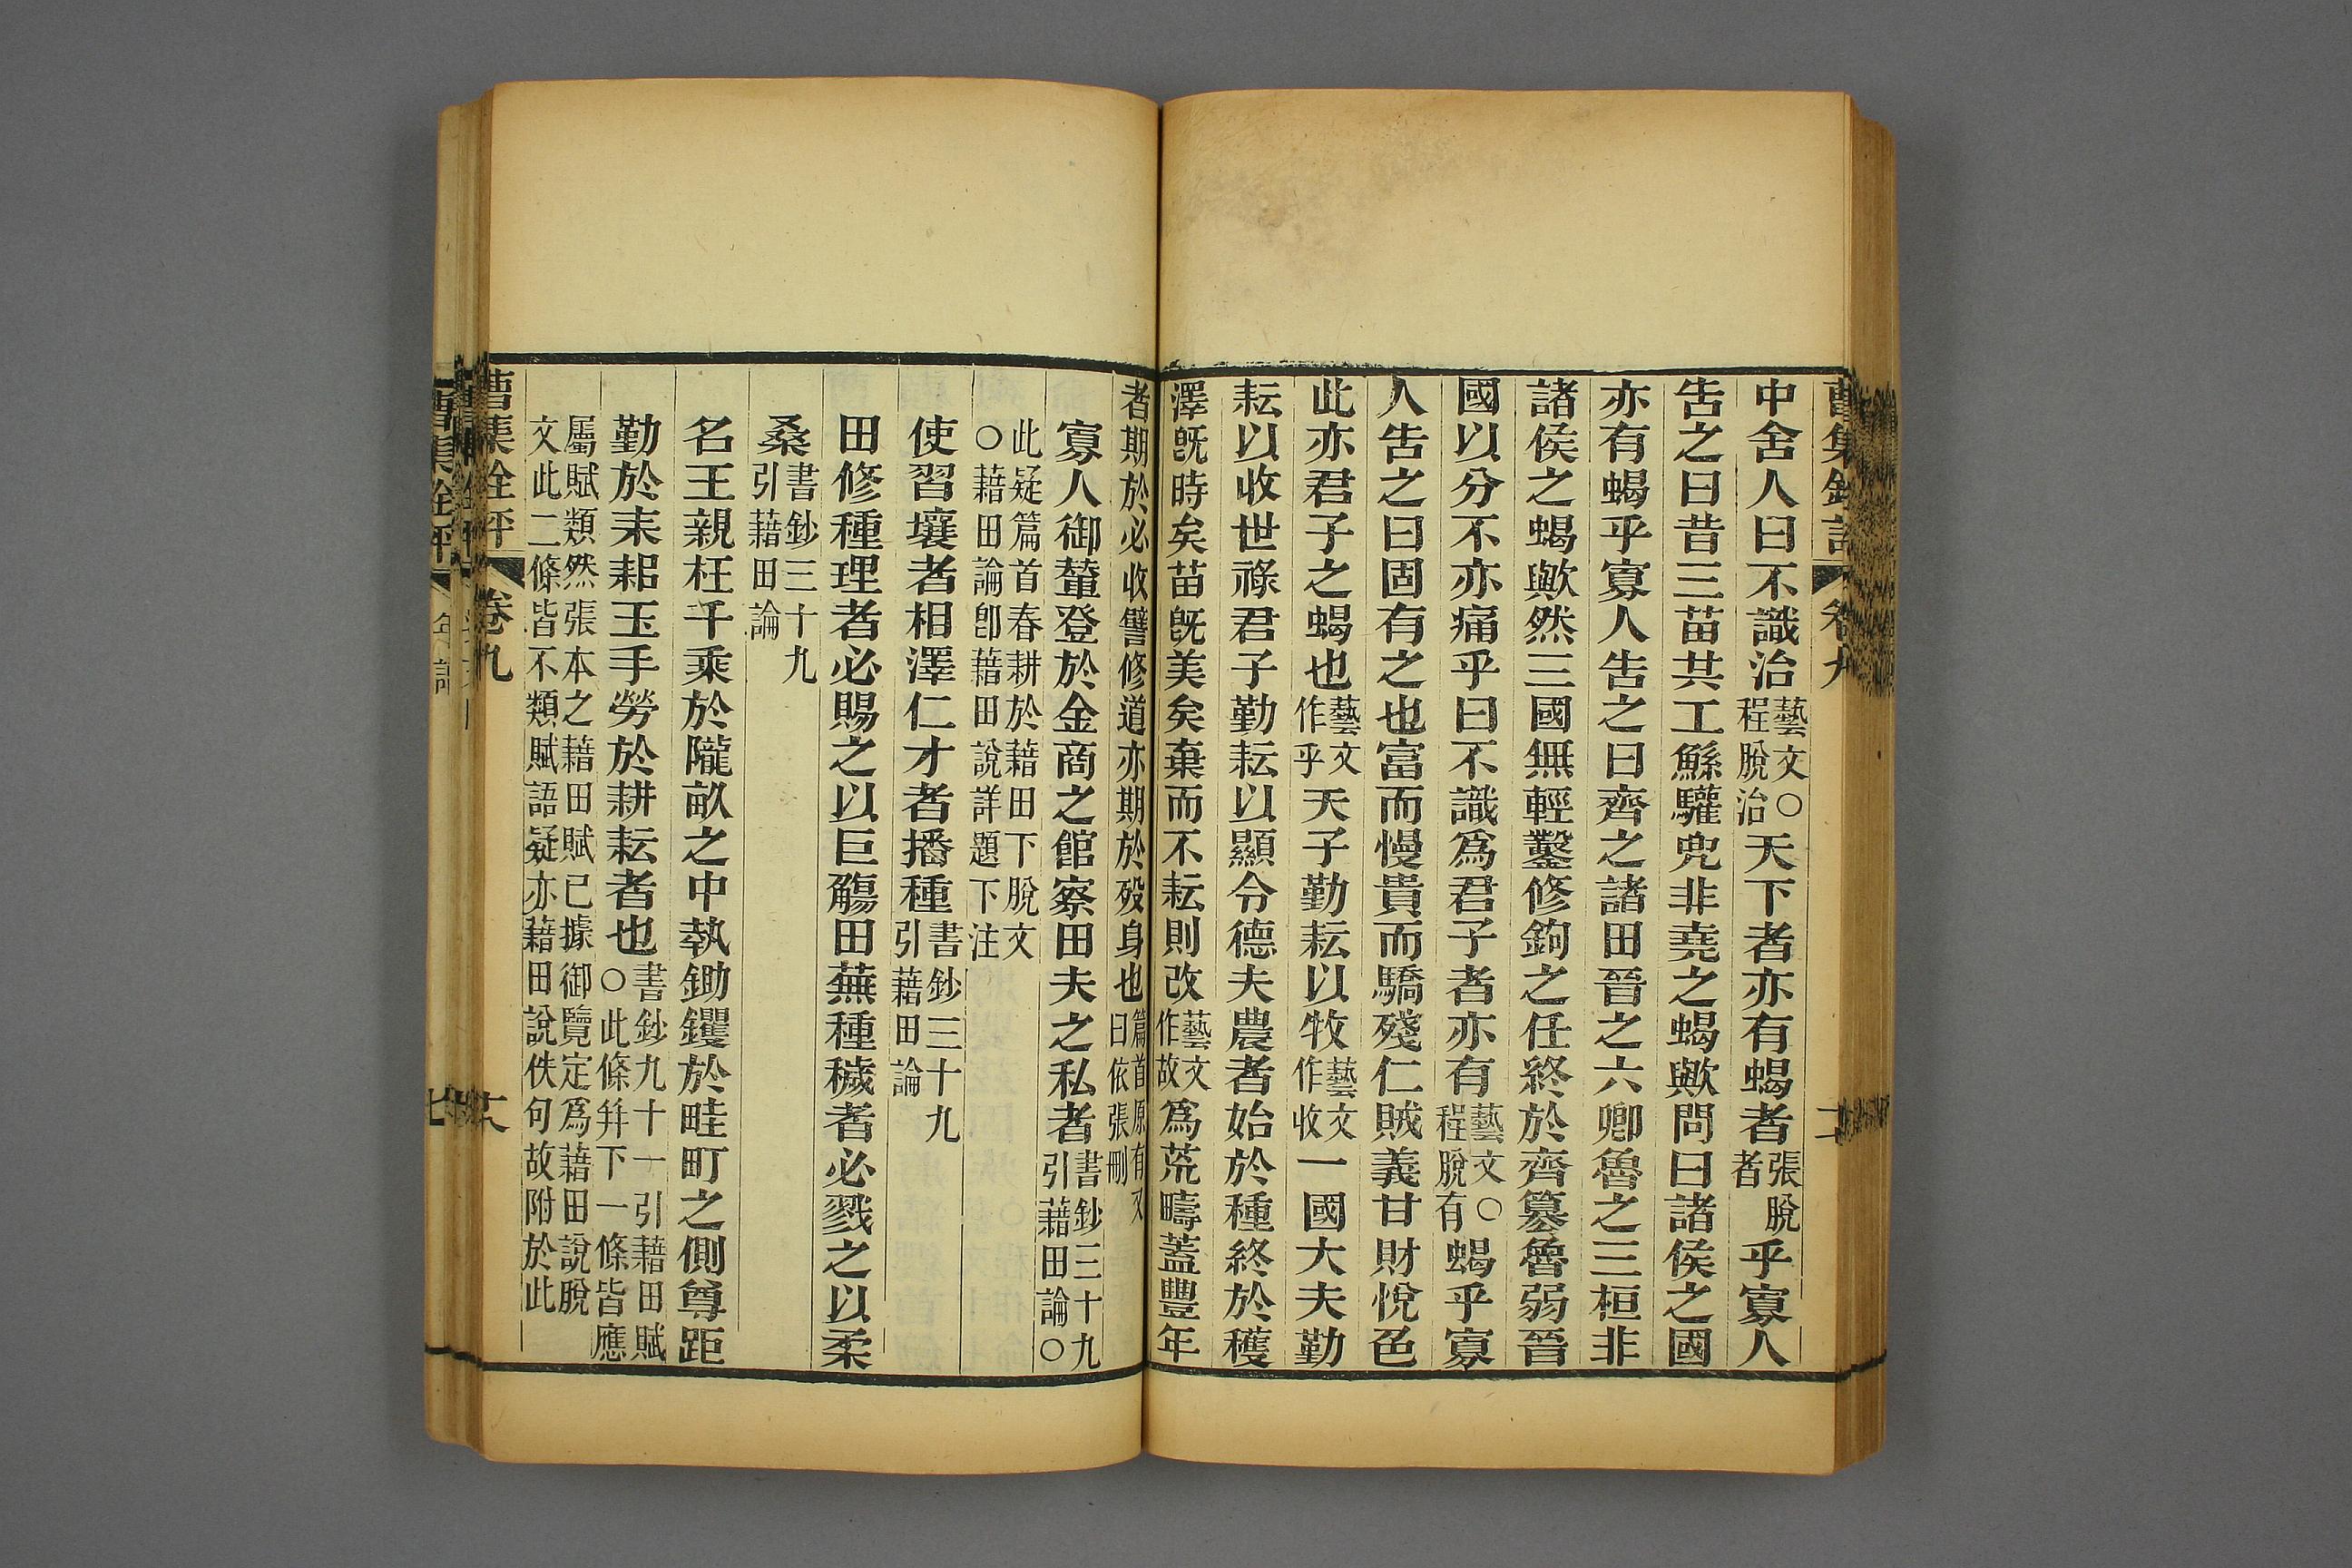 中舍人曰不識治藝文○程脫治天下者亦有蝎者張脫者乎寡人
告之曰昔三苗共工鯀驩兜非堯之蝎歟問曰諸侯之國
亦有蝎乎寡人告之曰齊之諸田晉之六卿魯之三桓非
諸侯之蝎歟然三國無輕鑿修鉤之任終於齊簒魯弱晉
國以分不亦痛乎曰不識爲君子者亦有藝文○程脫有蝎乎寡
人告之曰固有之也富而慢貴而驕殘仁賊義甘財悅色
此亦君子之蝎也藝文作乎天子勤耘以牧藝文作收一國大夫勤
耘以收世祿君子勤耘以顯令德夫農者始於種終於穫
澤旣時矣苗旣美矣棄而不耘則改藝文作故爲荒疇蓋豐年
者期於必收譬修道亦期於歿身也篇首原有又曰依張刪
寡人御輦登於金商之館察田夫之私者書鈔三十九引藉田論○
此疑篇首春耕於藉田下脫文
○藉田論卽藉田說詳題下注
使習壤者相澤仁才者播種書鈔三十九引藉田論
田修種理者必賜之以巨觴田蕪種穢者必戮之以柔
桑書鈔三十九引藉田論
名王親枉千乘於隴畝之中執鋤钁於畦町之側尊距
勤於耒耜玉手勞於耕耘者也書鈔九十一引藉田賦○此條幷下一條皆應
屬賦類然張本之藉田賦已據御覽定爲藉田說脫
文此二條皆不類賦語疑亦藉田說佚句故附於此
曹集銓評
卷九